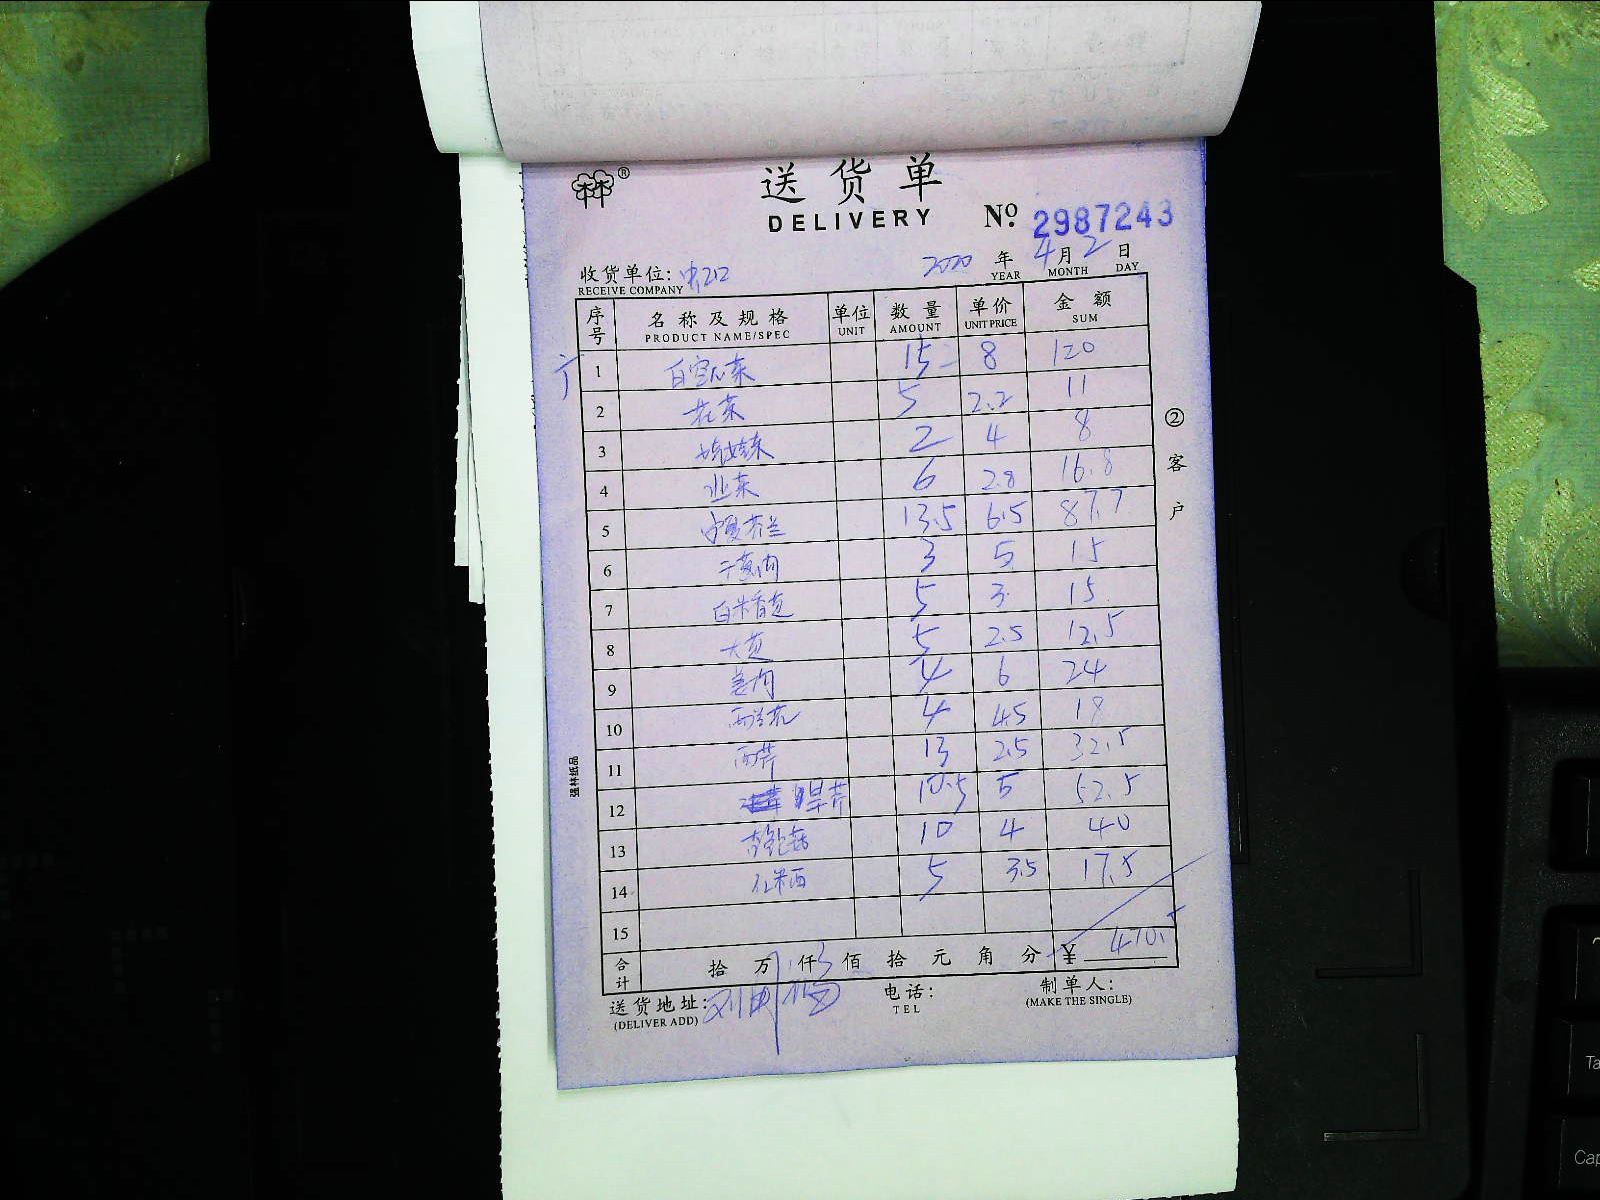 送货单
DELIVERY
No. 2987243
收货单位:
2020 年 4 月 2 日
RECEIVE COMPANY YEAR MONTH DAY
序号 名称及规格 单位 数量 单价 金额
PRODUCT NAME/SPEC UNIT AMOUNT UNIT PRICE SUM
1 15 8 120
2 花菜 5 2.2 11
3 2 4 8
4 韭菜 6 2.8 16.8
5 13.5 6.5 87.7
6 干葱肉 3 5 15
7 5 3 15
8 大葱 5 2.5 12.5
9 姜肉 4 6 24
10 西兰花 4 4.5 18
11 西芹 13 2.5 32.5
12 旱芹 10.5 5 52.5
13 10 4 40
14 5 3.5 17.5
15
合计 拾 万 仟 佰 拾 元 角 分 ¥ 470.5
送货地址:
(DELIVER ADD)
电话:
TEL
制单人:
(MAKE THE SINGLE)
②客户
强林纸品
Ta
Cap